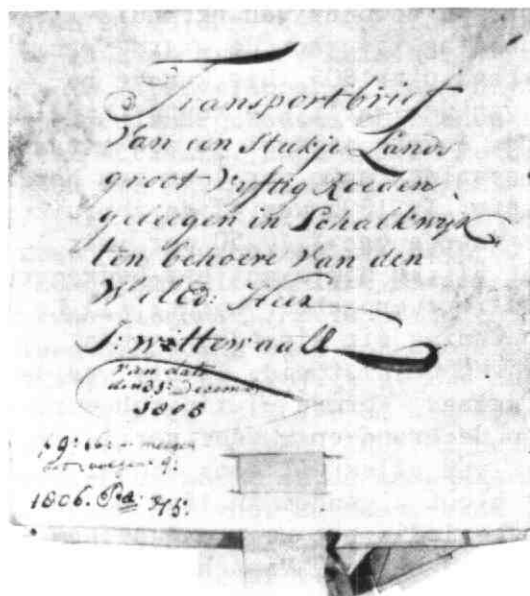 Transportbrief
Van een Stukje Lands
groot Vyftig Roeden
geleegen in Schalkwyk
ten behoeve Van den
WelEd: Heer
J: wttewaall
van dato
den 31: Decemb
1806
1806. Pa: 375.